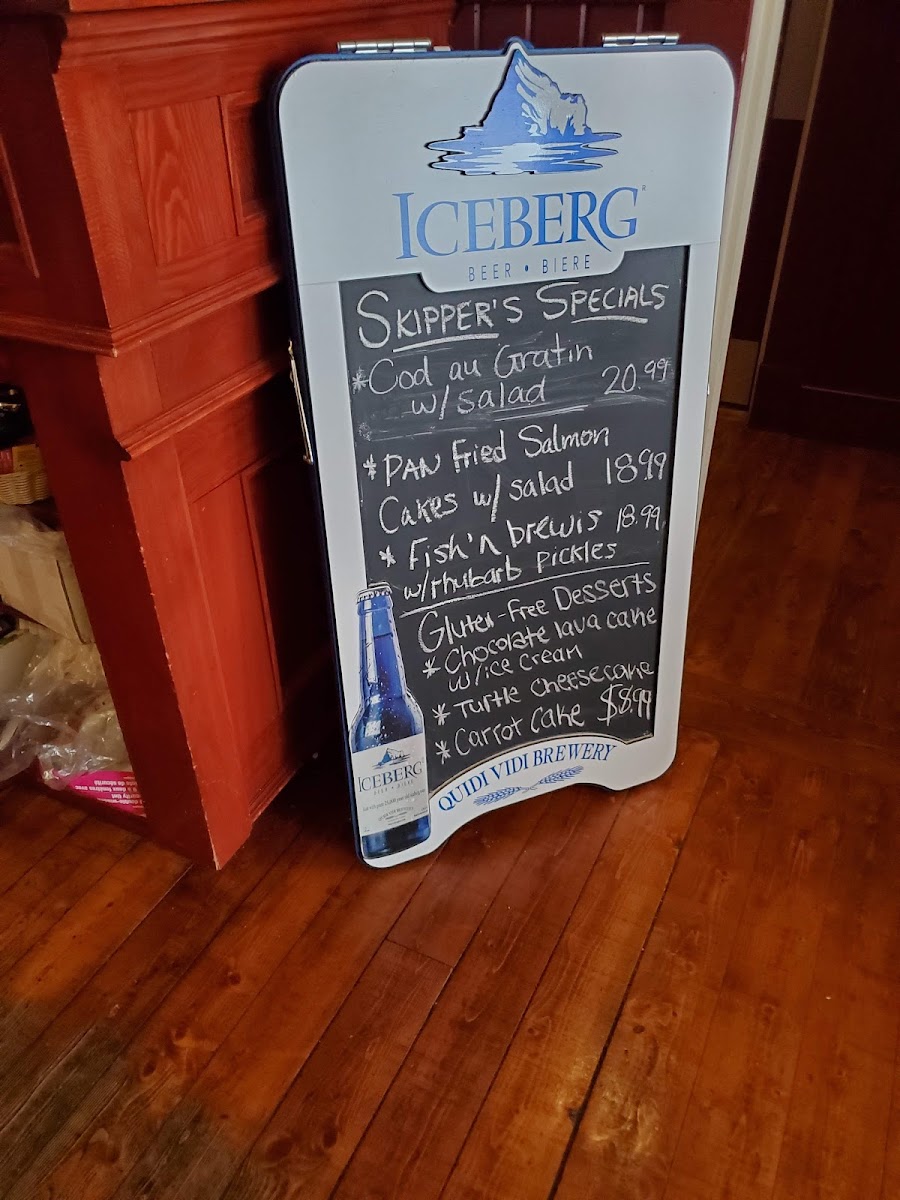 ICEBERG
BEER • BIERE
SKIPPER'S SPECIALS
*Cod au Gratin
w/salad 20.99
*PAN Fried Salmon
Cakes w/ salad 18.99
* Fish'n brewis 18.99
w/rhubarb pickles
Gluten-Free Desserts
* Chocolate lava cake
w/ice cream
* Turtle cheesecake
* Carrot cake $8.99
ICEBERG
BEER • BIERE
QUIDI VIDI BREWERY